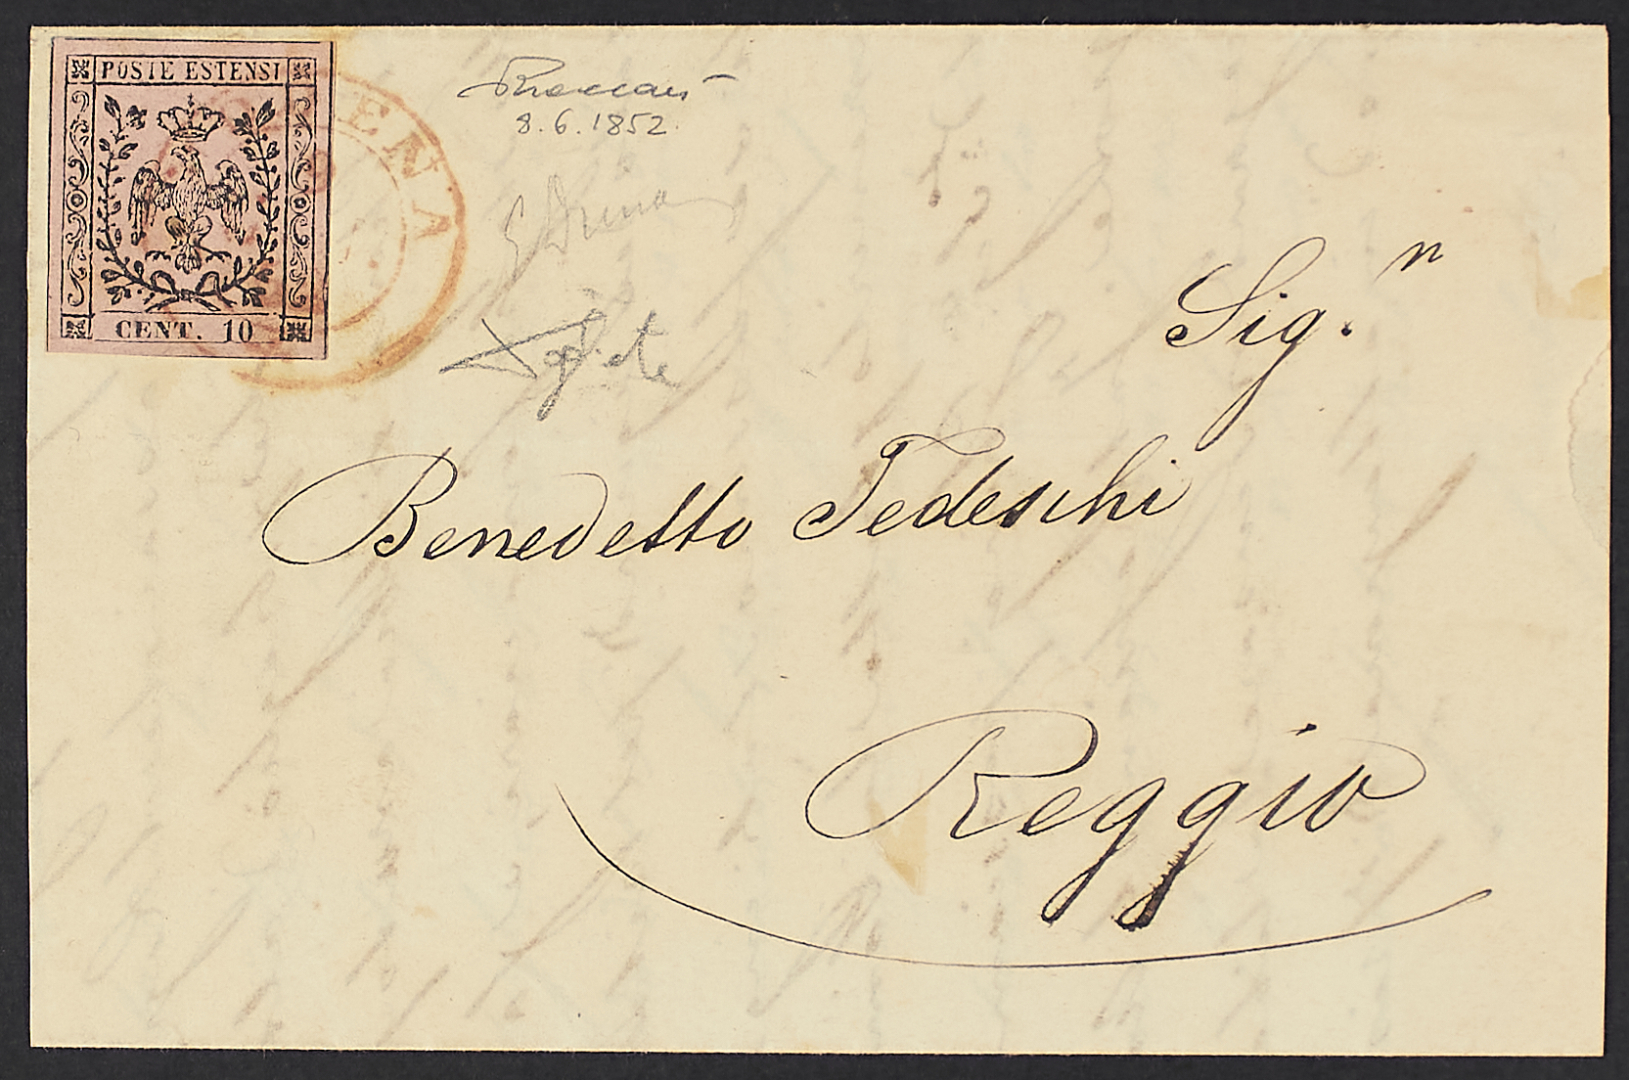 POSTE ESTENSI
CENT. 10
ENA
8.6.1852.
Sig.n
Benedetto Tedeschi
Reggio